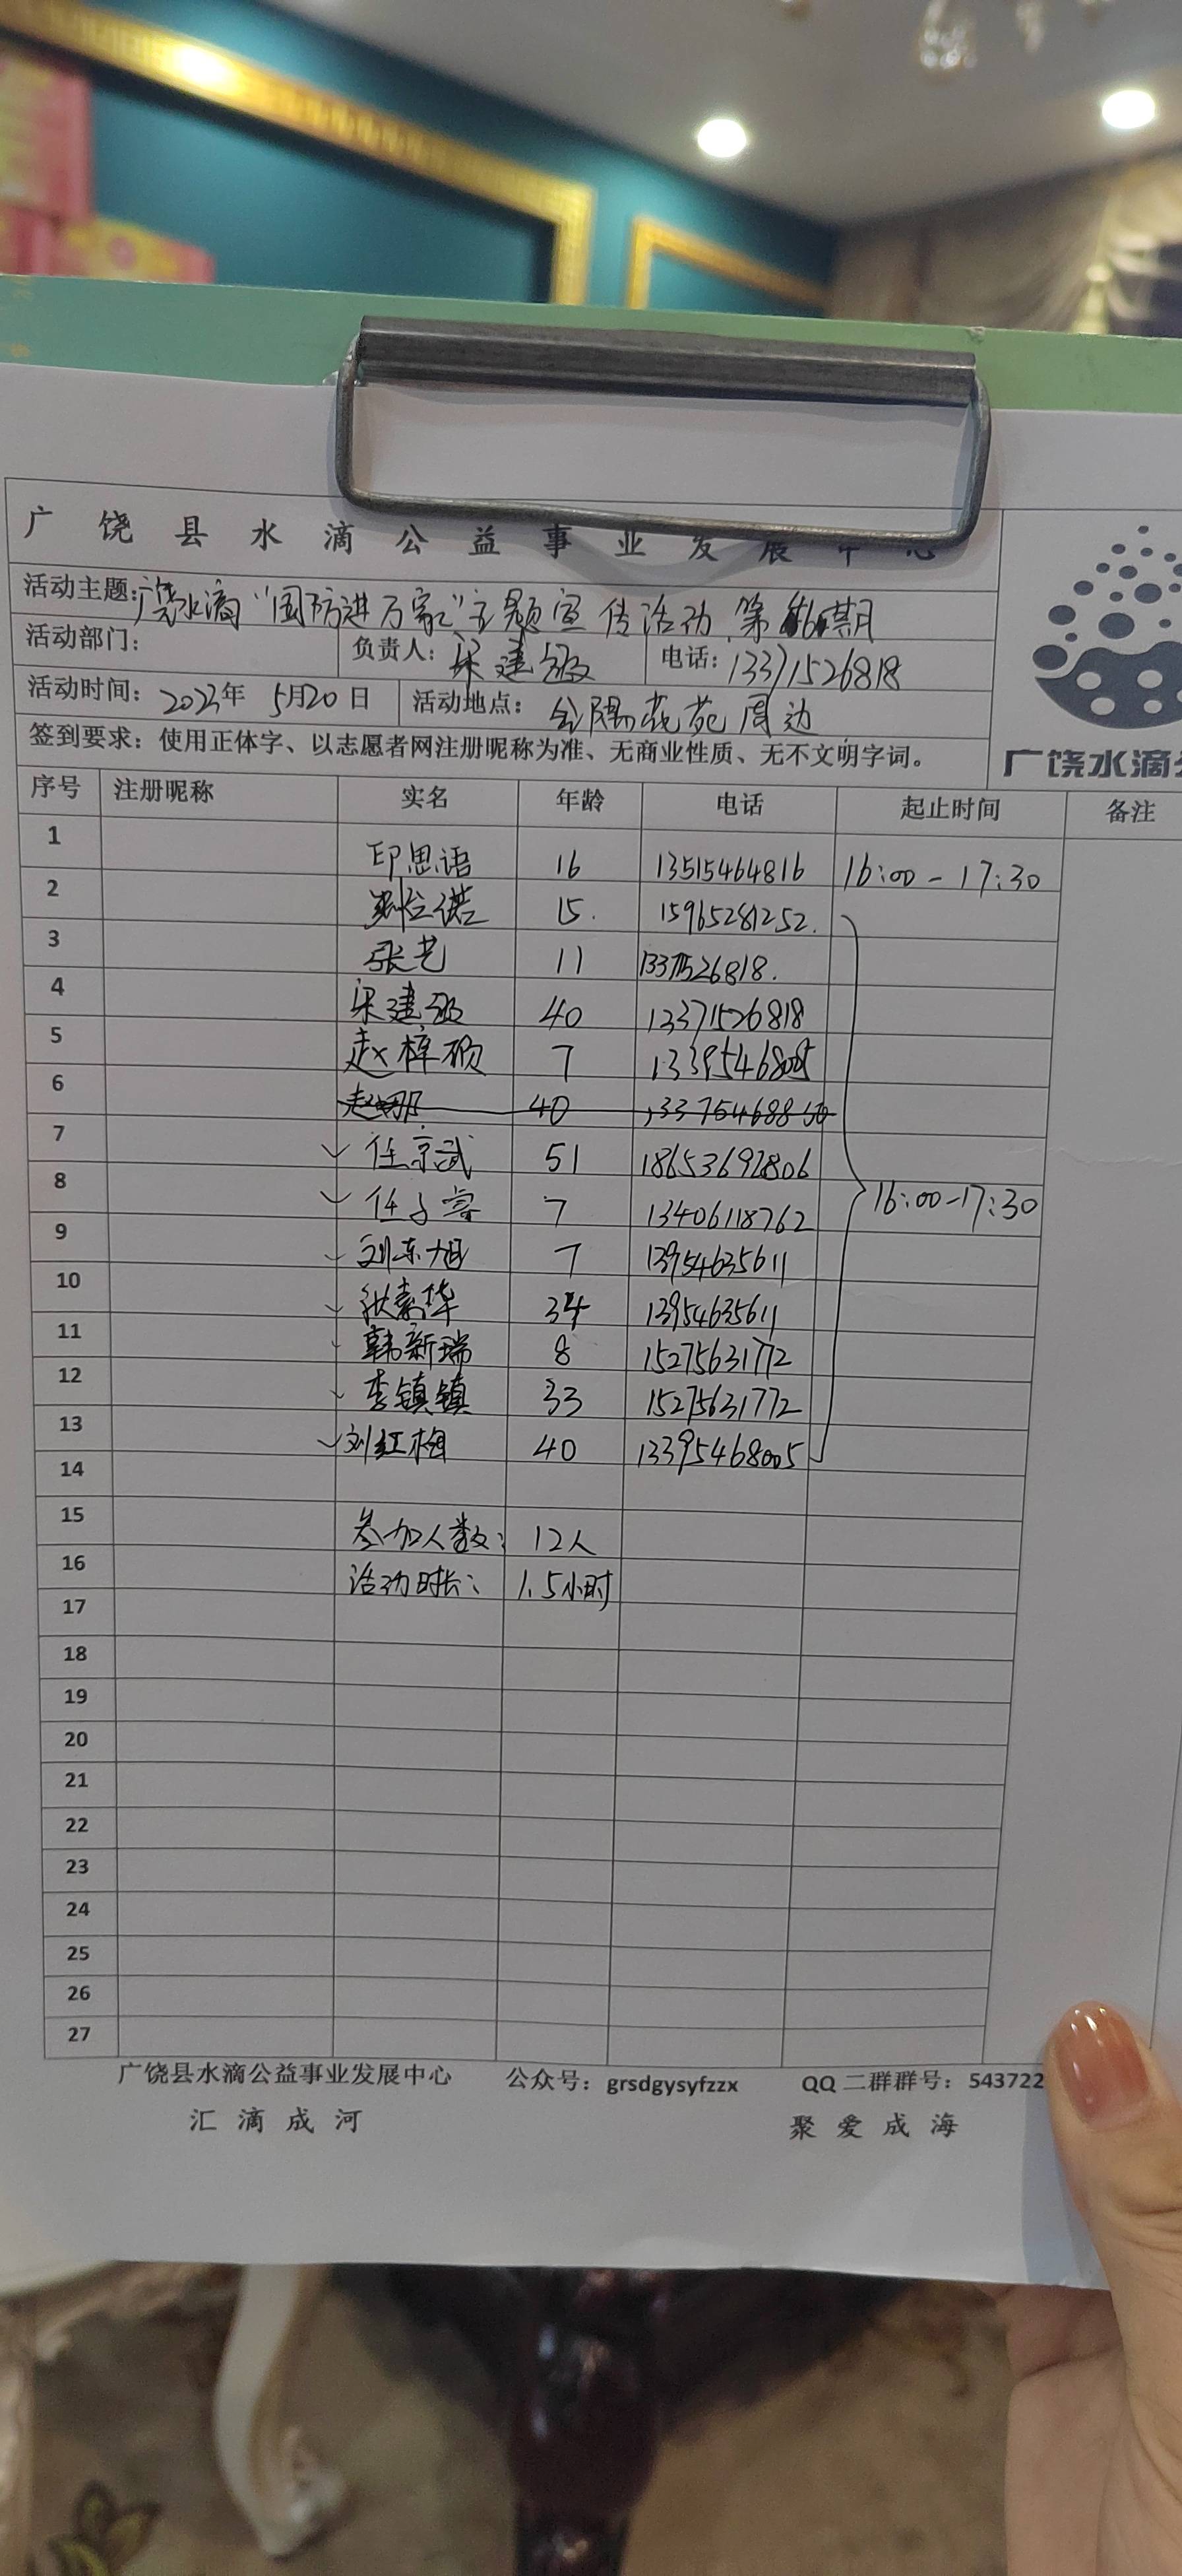 广饶县水滴公益事业发展中心
活动主题:广饶水滴"国防进万家"主题宣传活动 第 期
活动部门: 负责人:梁建 电话:13371526818
活动时间:2023年 5月20日 活动地点: 花苑周边
签到要求:使用正体字、以志愿者网注册昵称为准、无商业性质、无不文明字词。
广饶水滴
序号 注册昵称 实名 年龄 电话 起止时间 备注
1 印思语 16 13515464816 16:00-17:30
2 15. 15965281252.
3 张艺 11 13371526818.
4 梁建 40 13371526818
5 赵梓硕 7
6 赵娜 40
7 ✓ 任京武 51 18653692806
8 ✓ 任子睿 7 13406118762 16:00-17:30
9 ✓ 刘东旭 7 13954635611
10 ✓ 素华 34 13954635611
11 ✓ 韩新瑞 8 15275631772
12 ✓ 李镇镇 33 15275631772
13 ✓ 刘红梅 40 13395468005
14
15 参加人数: 12人
16 活动时长: 1.5小时
17
18
19
20
21
22
23
24
25
26
27
广饶县水滴公益事业发展中心 公众号:grsdgysyfzzx QQ二群群号:543722
汇滴成河 聚爱成海